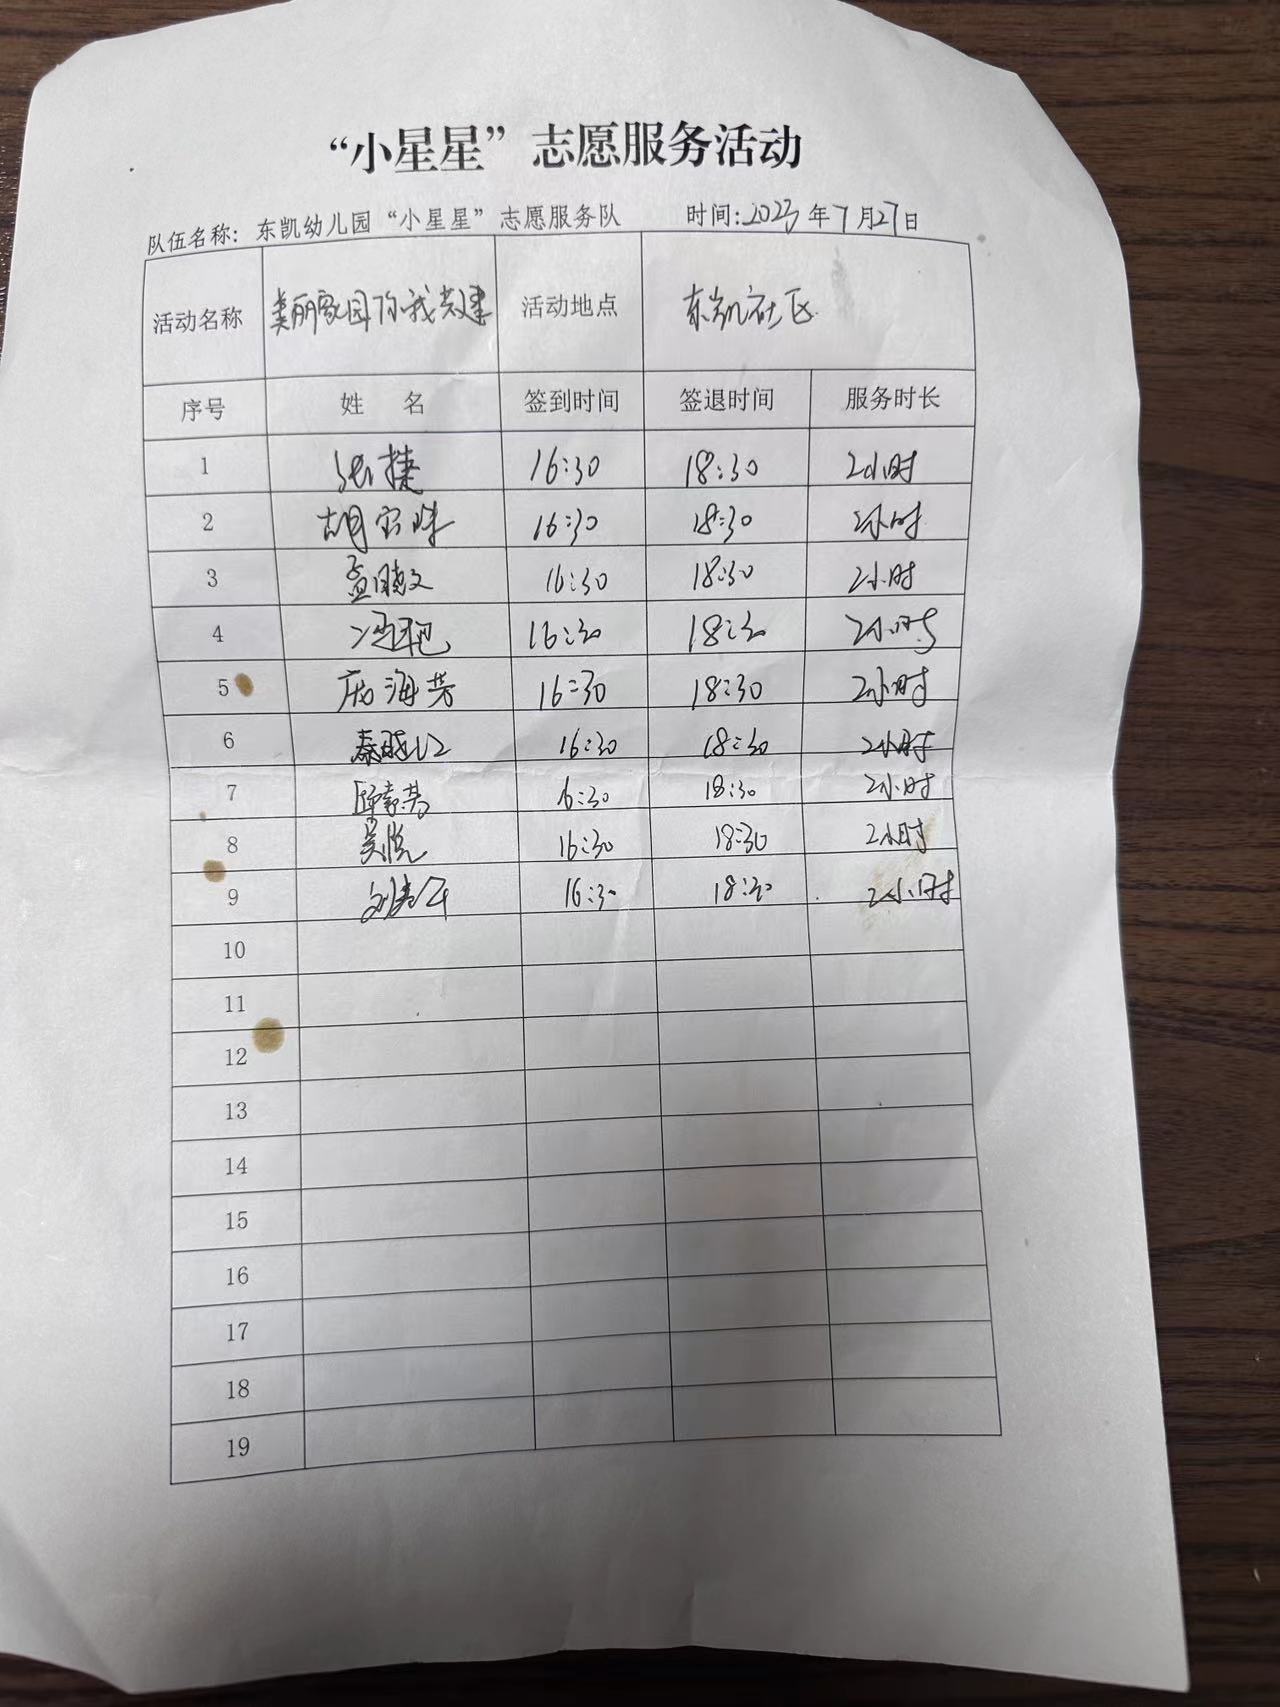 “小星星”志愿服务活动
队伍名称：东凯幼儿园“小星星”志愿服务队 时间：2023年7月27日
活动名称 美丽家园你我共建 活动地点 东凯社区
序号 姓 名 签到时间 签退时间 服务时长
1 张捷 16:30 18:30 2小时
2 胡宝珠 16:30 18:30 2小时
3 孟晓文 16:30 18:30 2小时
4 冯艳 16:30 18:30 2小时
5 庞海芳 16:30 18:30 2小时
6 秦晓红 16:30 18:30 2小时
7 16:30 18:30 2小时
8 吴悦 16:30 18:30 2小时
9 16:30 18:30 2小时
10
11
12
13
14
15
16
17
18
19